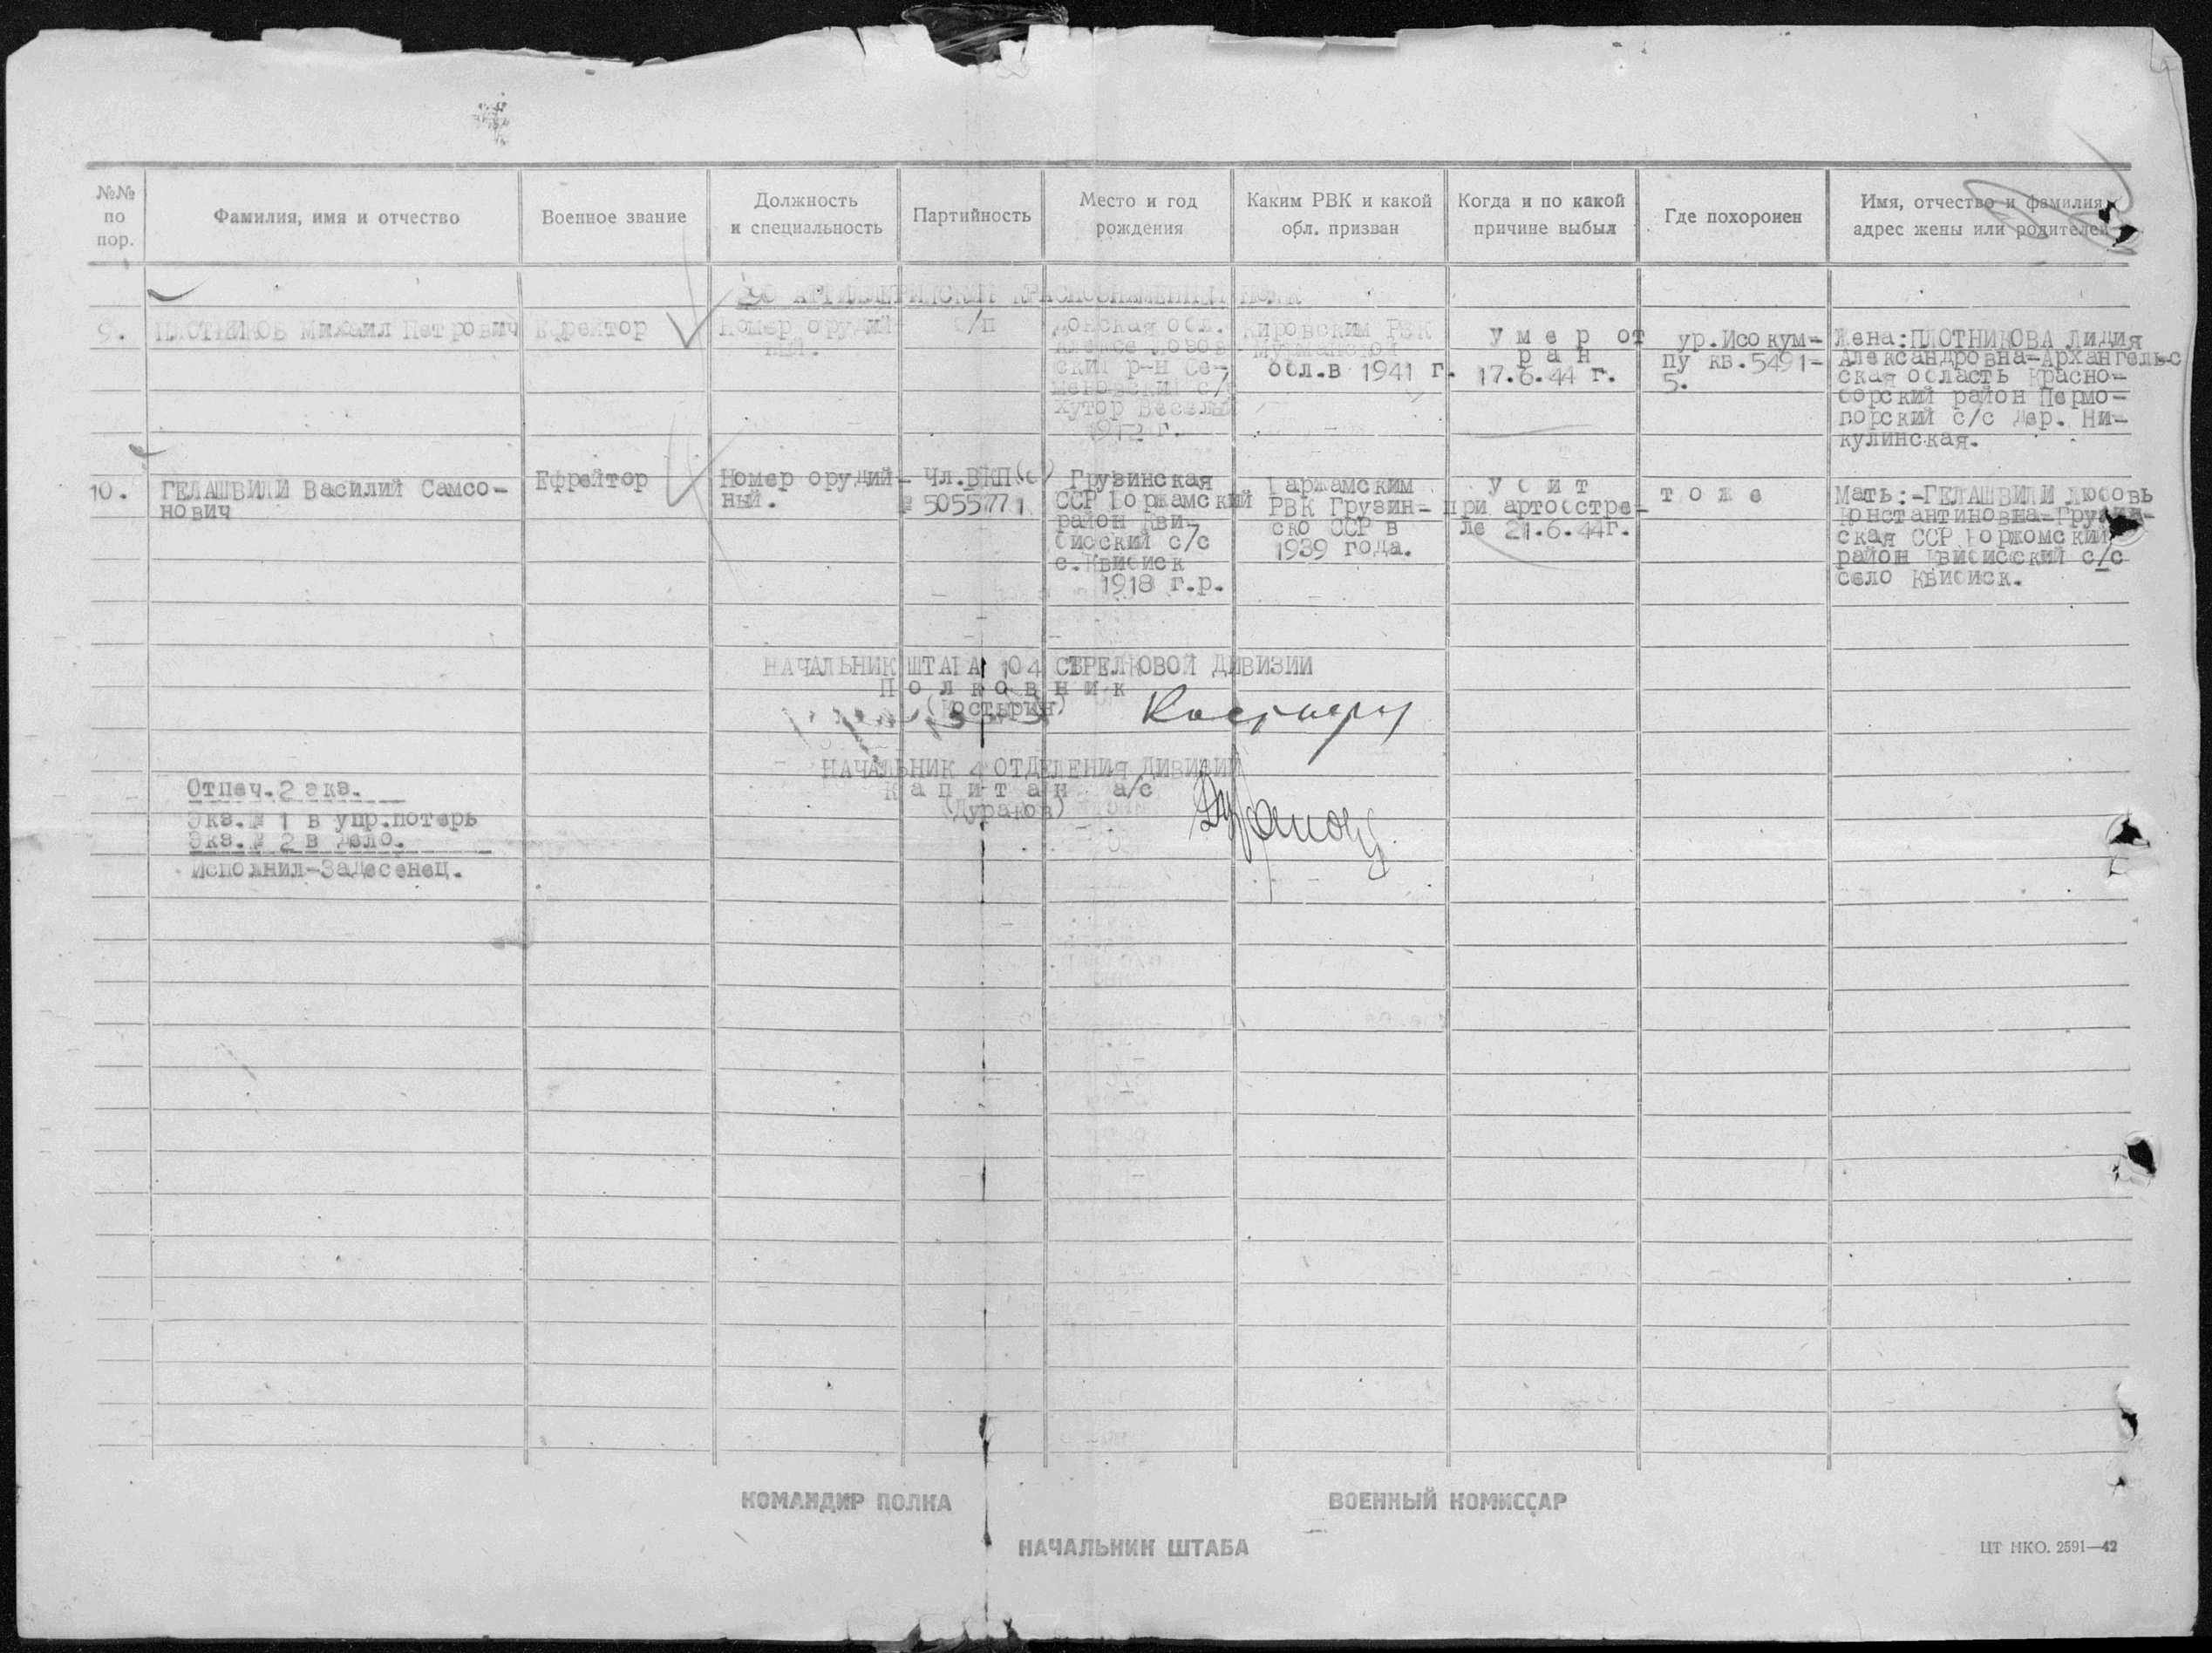 №№ по пор.
Фамилия, имя и отчество
Военное звание
Должность и специальность
Партийность
Место и год рождения
Каким РВК и какой обл. призван
Когда и по какой причине выбыл
Где похоронен
Имя, отчество и фамилия, адрес жены или родителей
АРТИЛЛЕРИЙСКИЙ КРАСНОЗНАМЕННЫЙ ПОЛК
9.
ПЛОТНИКОВ Михаил Петрович
Ефрейтор
Номер орудий-
ный.
б/п
Донская обл.
ский р-н Се-
меновский с/с
хутор Веселый
1912 г.
Кировским РВК
Мурманской
обл.в 1941 г.
У м е р от
р а н
17.6.44 г.
ур.Исокум-
пу кв.5491-
5.
Жена:ПЛОТНИКОВА Лидия
Александровна-Архангельс
ская область Красно-
борский район Пермо-
горский с/с дер. Ни-
кулинская.
10.
ГЕЛАШВИЛИ Василий Самсо-
нович
Ефрейтор
Номер орудий-
ный.
Чл.ВКП(б)
№ 5055771
Грузинская
ССР Боржамский
район Кви-
бисский с/с
с.Квибиск
1918 г.р.
Баржамским
РВК Грузин-
ско ССР в
1939 года.
У б и т
при артобстре-
ле 21.6.44г.
т о ж е
Мать:-ГЕЛАШВИЛИ Любовь
Константиновна-Грузин-
ская ССР Боржомский
район Квибисский с/с
село Квибиск.
НАЧАЛЬНИК ШТАБА 104 СТРЕЛКОВОЙ ДИВИЗИИ
П о л к о в н и к
(Костырин)
НАЧАЛЬНИК 4 ОТДЕЛЕНИЯ ДИВИЗИИ
К а п и т а н а/с
(Дураков)
Отпеч.2 экз.
Экз.№ 1 в упр.потерь
Экз.№ 2 в дело.
Исполнил-Задесенец.
КОМАНДИР ПОЛКА
ВОЕННЫЙ КОМИССАР
НАЧАЛЬНИК ШТАБА
ЦТ НКО. 2591—42